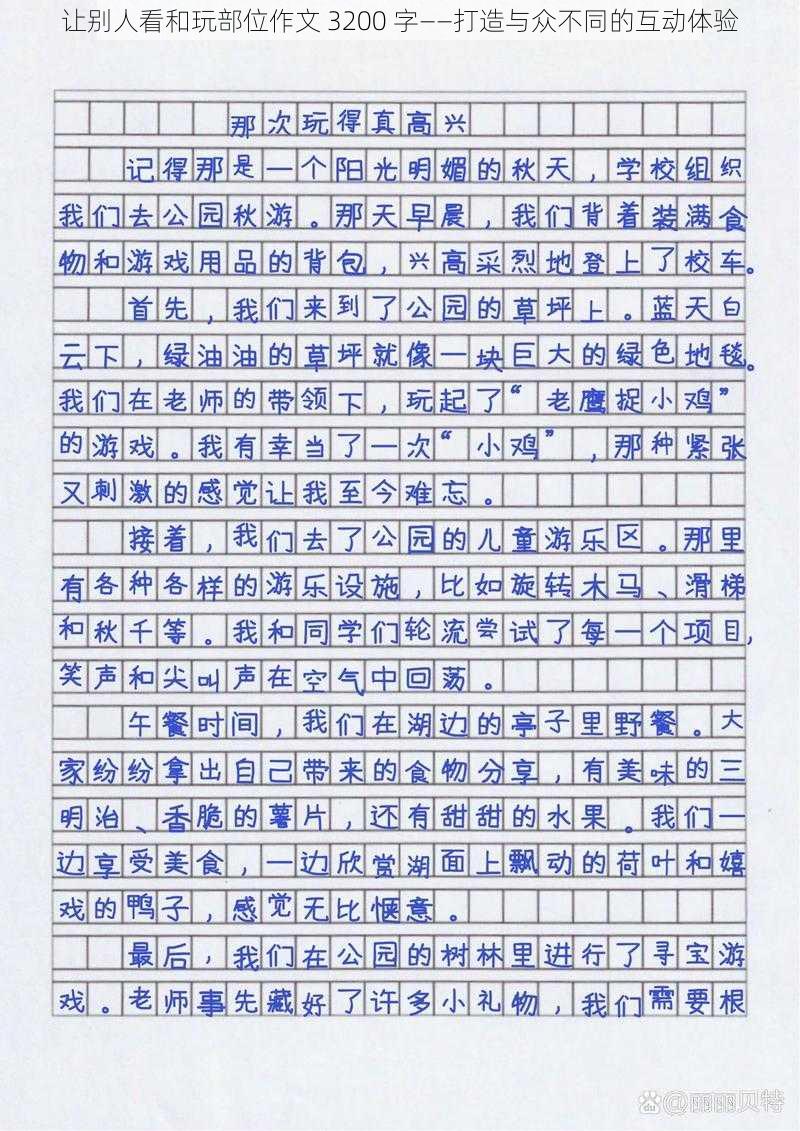 让别人看和玩部位作文 3200 字——打造与众不同的互动体验
那次玩得真高兴
记得那是一个阳光明媚的秋天，学校组织
我们去公园秋游。那天早晨，我们背着装满食
物和游戏用品的背包，兴高采烈地登上了校车。
首先，我们来到了公园的草坪上。蓝天白
云下，绿油油的草坪就像一块巨大的绿色地毯。
我们在老师的带领下，玩起了“老鹰捉小鸡”
的游戏。我有幸当了一次“小鸡”，那种紧张
又刺激的感觉让我至今难忘。
接着，我们去了公园的儿童游乐区。那里
有各种各样的游乐设施，比如旋转木马、滑梯
和秋千等。我和同学们轮流尝试了每一个项目，
笑声和尖叫声在空气中回荡。
午餐时间，我们在湖边的亭子里野餐。大
家纷纷拿出自己带来的食物分享，有美味的三
明治、香脆的薯片，还有甜甜的水果。我们一
边享受美食，一边欣赏湖面上飘动的荷叶和嬉
戏的鸭子，感觉无比惬意。
最后，我们在公园的树林里进行了寻宝游
戏。老师事先藏好了许多小礼物，我们需要根
@丽丽贝特